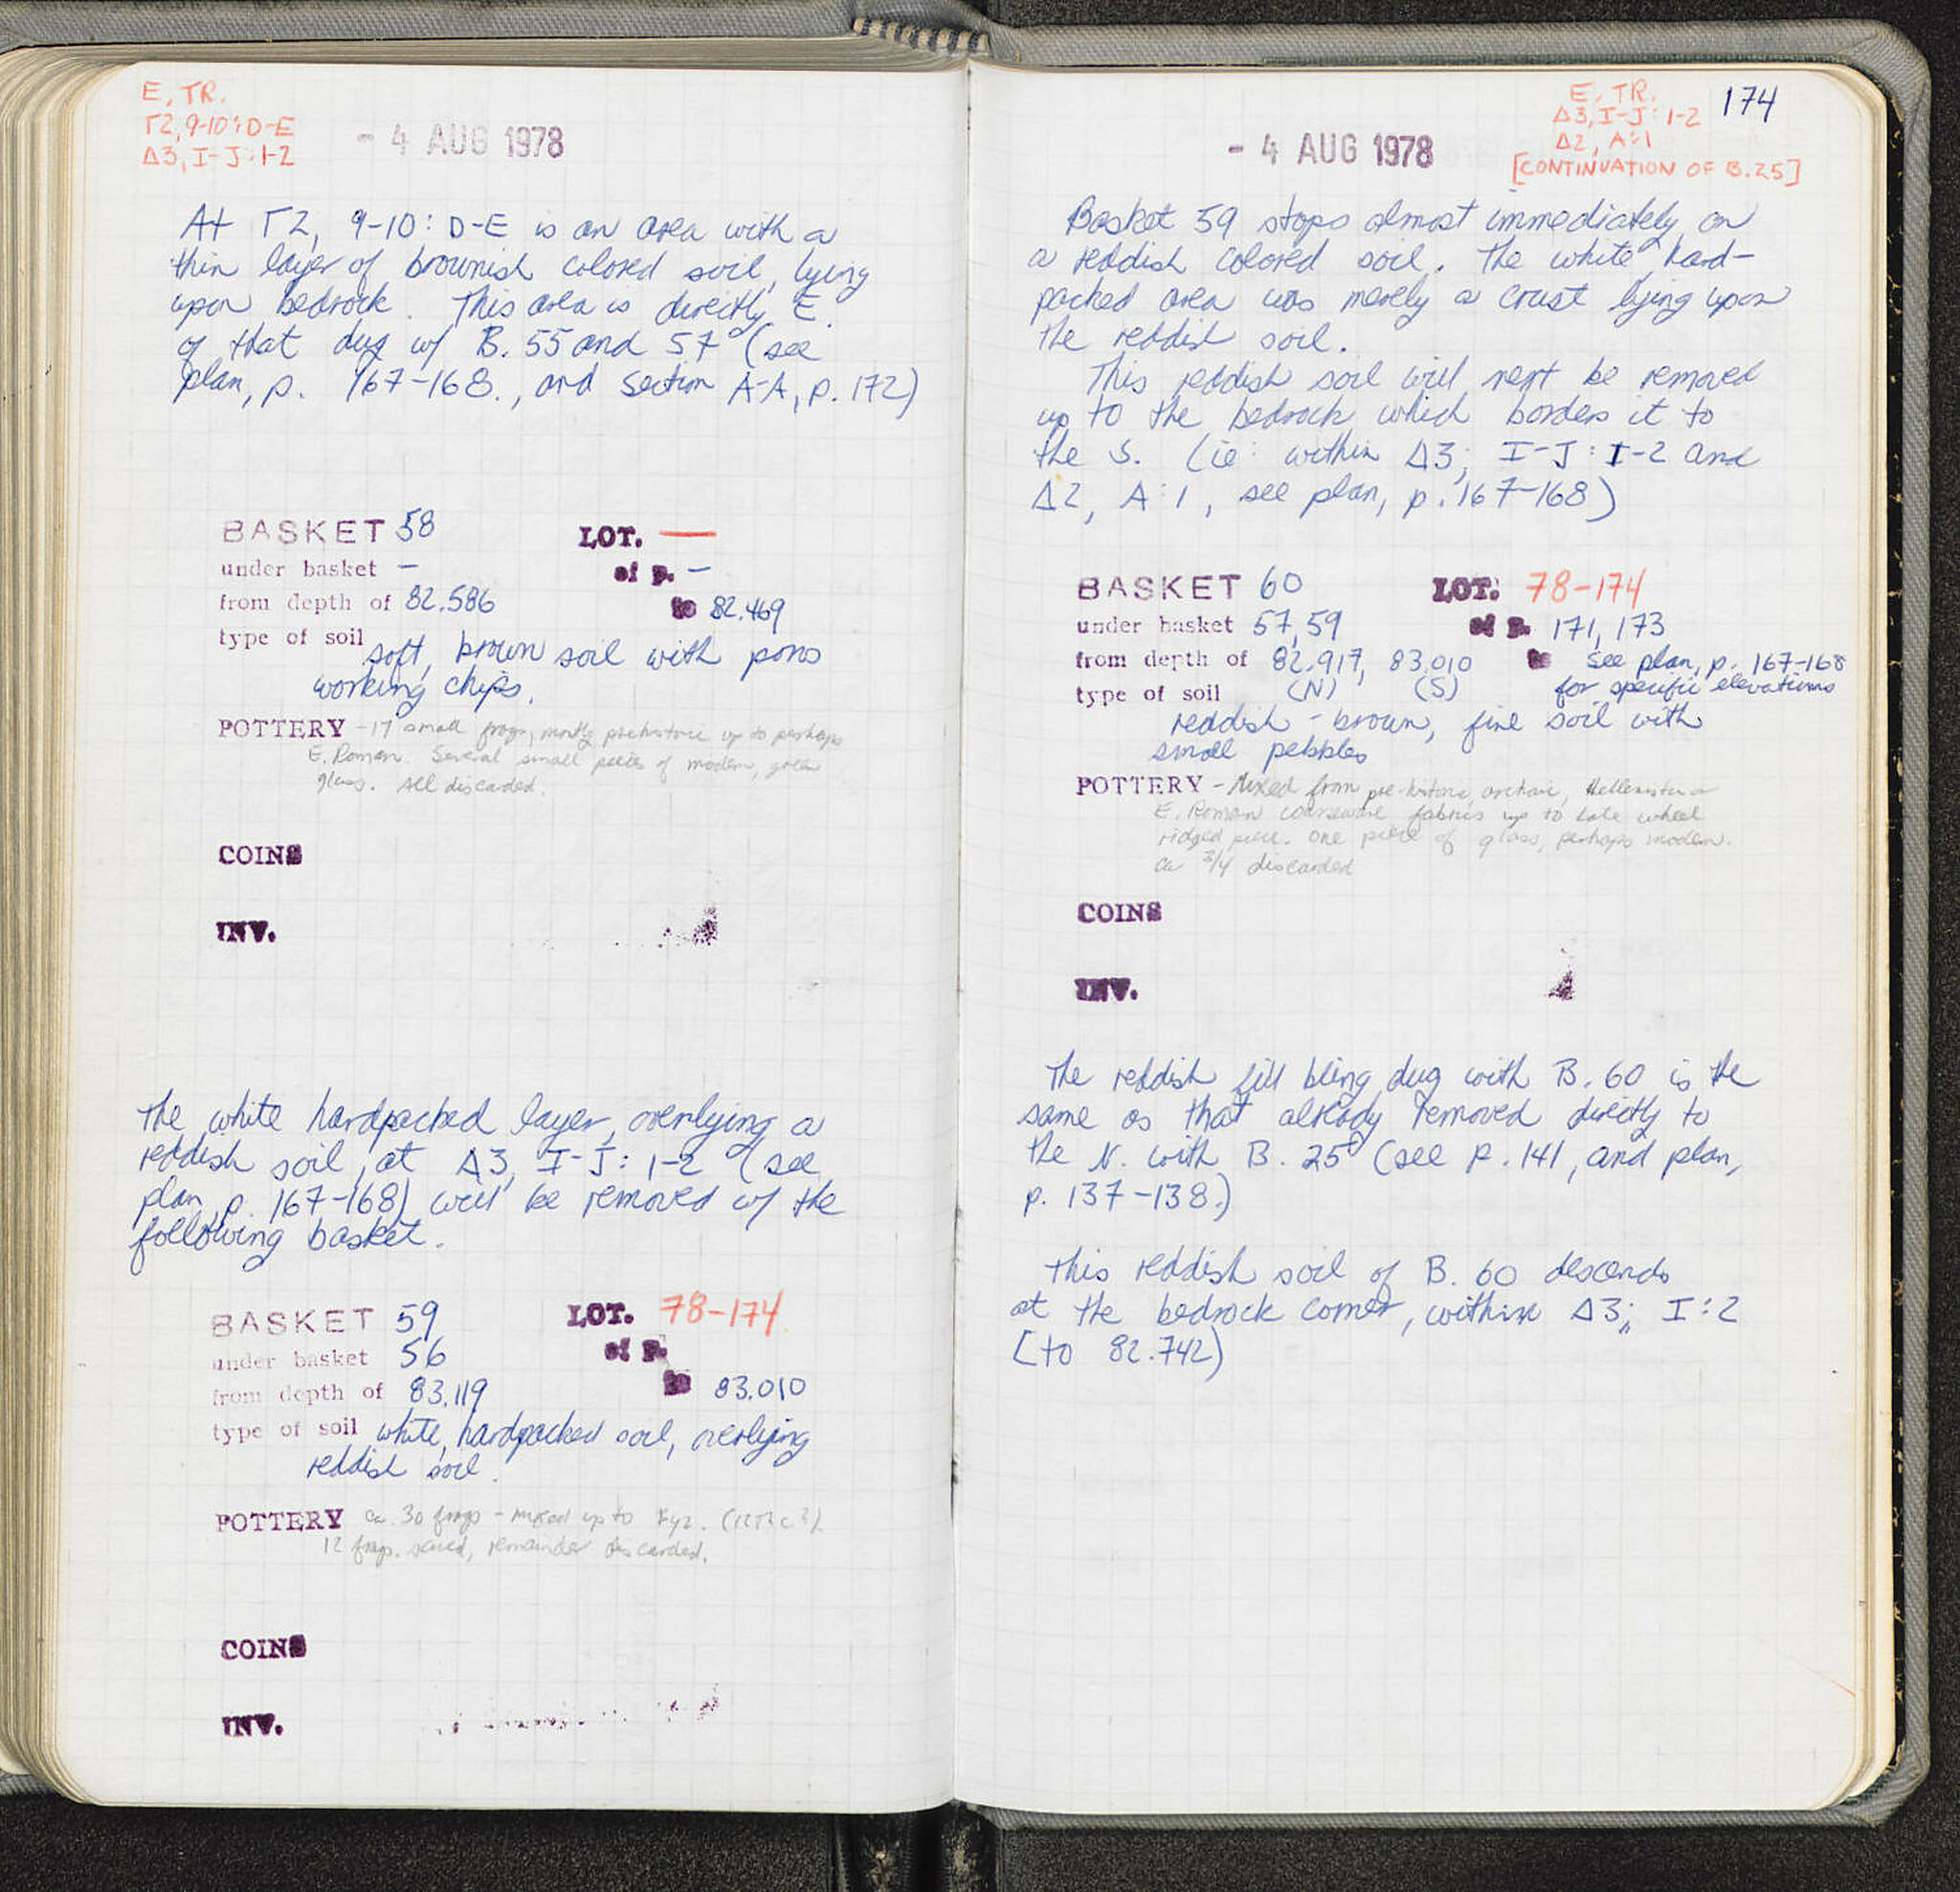 E, TR.
Γ2, 9-10:D-E
Δ3, I-J:1-2
- 4 AUG 1978
At Γ2, 9-10: D-E is an area with a
thin layer of brownish colored soil, lying
upon bedrock. This area is directly E.
of that dug w/ B. 55 and 57 (see
plan, p. 167-168., and section A-A, p. 172)
BASKET 58 LOT. —
under basket – of p. –
from depth of 82.586 to 82.469
type of soil soft, brown soil with poros
working chips.
POTTERY - 17 small frags, mostly prehistoric up to perhaps
E. Roman. Several small pieces of modern, green
glass. All discarded.
COINS
INV.
The white hardpacked layer, overlying a
reddish soil, at Δ3, I-J: 1-2 (see
plan, p. 167-168) will be removed w/ the
following basket.
BASKET 59 LOT. 78-174
under basket 56 of p.
from depth of 83.119 to 83.010
type of soil white, hardpacked soil, overlying
reddish soil.
POTTERY ca. 30 frags - mixed up to Byz. (12th c ?).
12 frags. saved, remainder discarded.
COINS
INV.
E. TR. 174
Δ3, I-J: 1-2
Δ2, A:1
[CONTINUATION OF B.25]
- 4 AUG 1978
Basket 59 stops almost immediately on
a reddish colored soil. The white hard-
packed area was merely a crust lying upon
the reddish soil.
This reddish soil will next be removed
up to the bedrock which borders it to
the S. (ie: within Δ3; I-J: 1-2 and
Δ2, A:1, see plan, p. 167-168)
BASKET 60 LOT. 78-174
under basket 57, 59 of p. 171, 173
from depth of 82.917, 83.010 to see plan, p. 167-168
type of soil (N) (S) for specific elevations
reddish-brown, fine soil with
small pebbles
POTTERY - Mixed from pre-historic, archaic, Hellenistic or
E. Roman coarseware fabrics up to late wheel
ridged piece. One piece of glass, perhaps modern.
ca 3/4 discarded
COINS
INV.
The reddish fill being dug with B. 60 is the
same as that already removed directly to
the N. with B. 25 (see p. 141, and plan,
p. 137-138.)
This reddish soil of B. 60 descends
at the bedrock corner, within Δ3; I:2
(to 82.742)